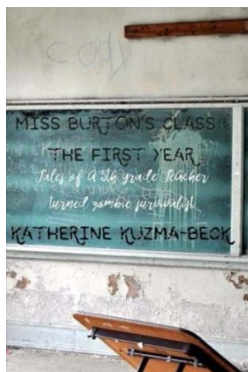 MISS BURTON'S CLASS:
THE FIRST YEAR
Tales of A 5th Grade Teacher
turned zombie survivalist
KATHERINE KUZMA-BECK